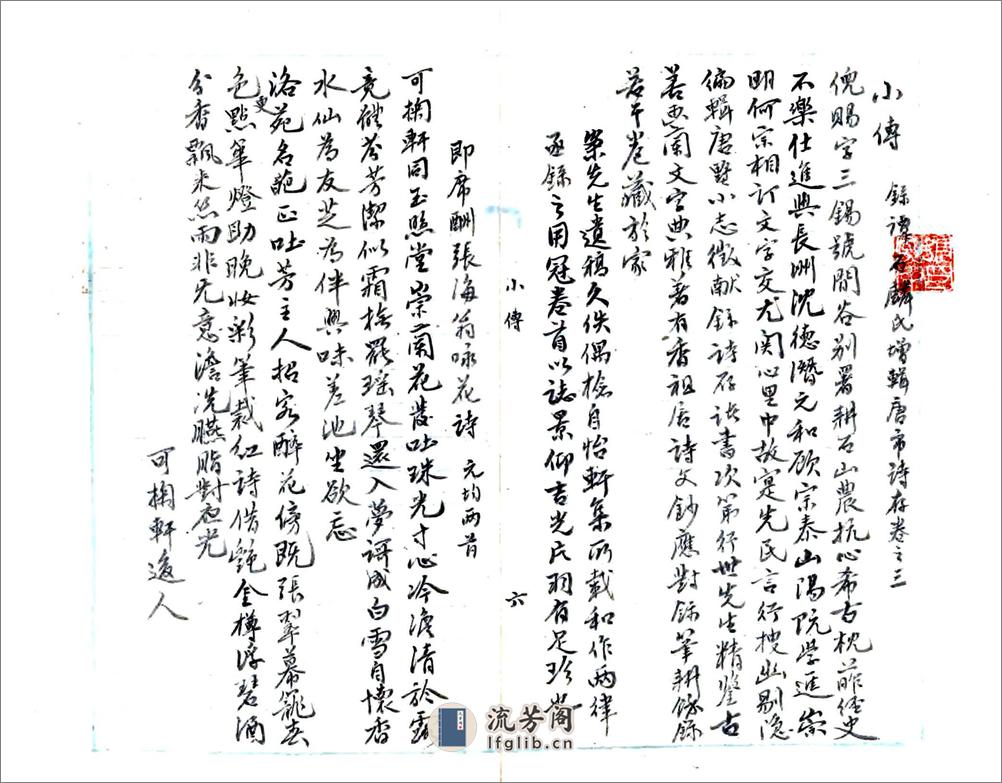 小傳　錄譚石麟氏增輯唐市詩存卷之三
倪賜字三錫號閒谷別署耕石山農抗心希古枕葄經史
不樂仕進與長洲沈德潛元和顧宗泰山陽阮學進崇
明何宗相訂文字交尤関心里巾故寔先民言行搜幽剔隐
徧輯唐墅小志徵獻錄詩存诸書次第行世先生精鉴古
善画蘭文字典雅著有香祖居詩文鈔應對錄筆耕餘錄
若干卷藏於家
案先生遺稿久佚偶檢自怡軒集所載和作兩律
亟錄之用冠卷首以誌景仰吉光片羽有足珍也
即席酬張海翁咏花詩　元均兩首
可掬軒同玉照堂崇蘭花發吐珠光寸心冷澹清於露
竟體芬芳潔似霜撫罷瑶琴還入夢調成白雪自懷香
水仙為友芝為伴興味差池坐欲忘
洛苑名葩正吐芳主人招客醉花傍既張翠幕籠春
色更點華燈助晚妝彩筆裁紅詩借艷金樽浮碧酒
分香飄来丝雨非无意澹洗臙脂對夜光
可掬軒後人
小傳
六
流芳阁
lfglib.cn